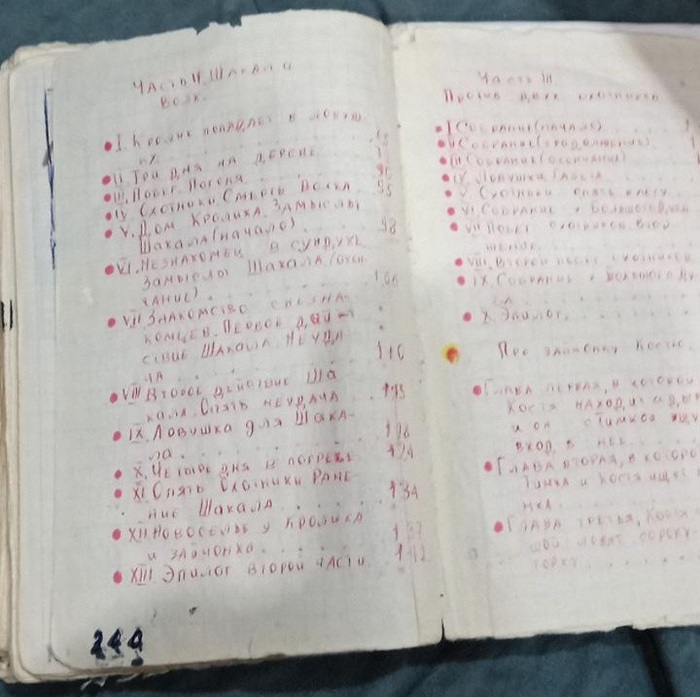 Часть II. Шакал и
Волк.
I. Кролик попадает в ловуш-
ку.
II. Три дня на дереве.
III. Побег. Погоня. 90
IV. Охотники. Смерть Волка 95
V. Дом Кролика. Замыслы
Шакала (начало) 98
VI. Незнакомец в сундуке.
Замыслы Шакала. (окон-
чание) 106
VII. Знакомство с незна-
комцев. Первое дей-
ствие Шакала. Неуда
ча 110
VIII Второе действие Ша
кала. Опять неудача 115
IX. Ловушка для Шака-
ла. 118
X. Четыре дня в погребе 124
XI. Опять Охотники. Ране
ние Шакала 134
XII. Новоселье у Кролика
и зайчонка 137
XIII. Эпилог второй части 142
244
Часть III.
Против двух охотников
I Собрание (начало)
II Собрание (продолжение)
III. Собрание (окончание)
IV. Ловушки
V. Охотники опять
VI. Собрание у Большого
VII Побег охотников
VIII. Второй побег охотников
IX. Собрание у Большого
X. Эпилог.
Про зайчонку Костю.
Глава первая, в которой
Костя находит
и он с Тимкой ищу
вход в нее
Глава вторая, в которо
Тимка и Костя ищ
Глава третья, Костя
ловят сороку-